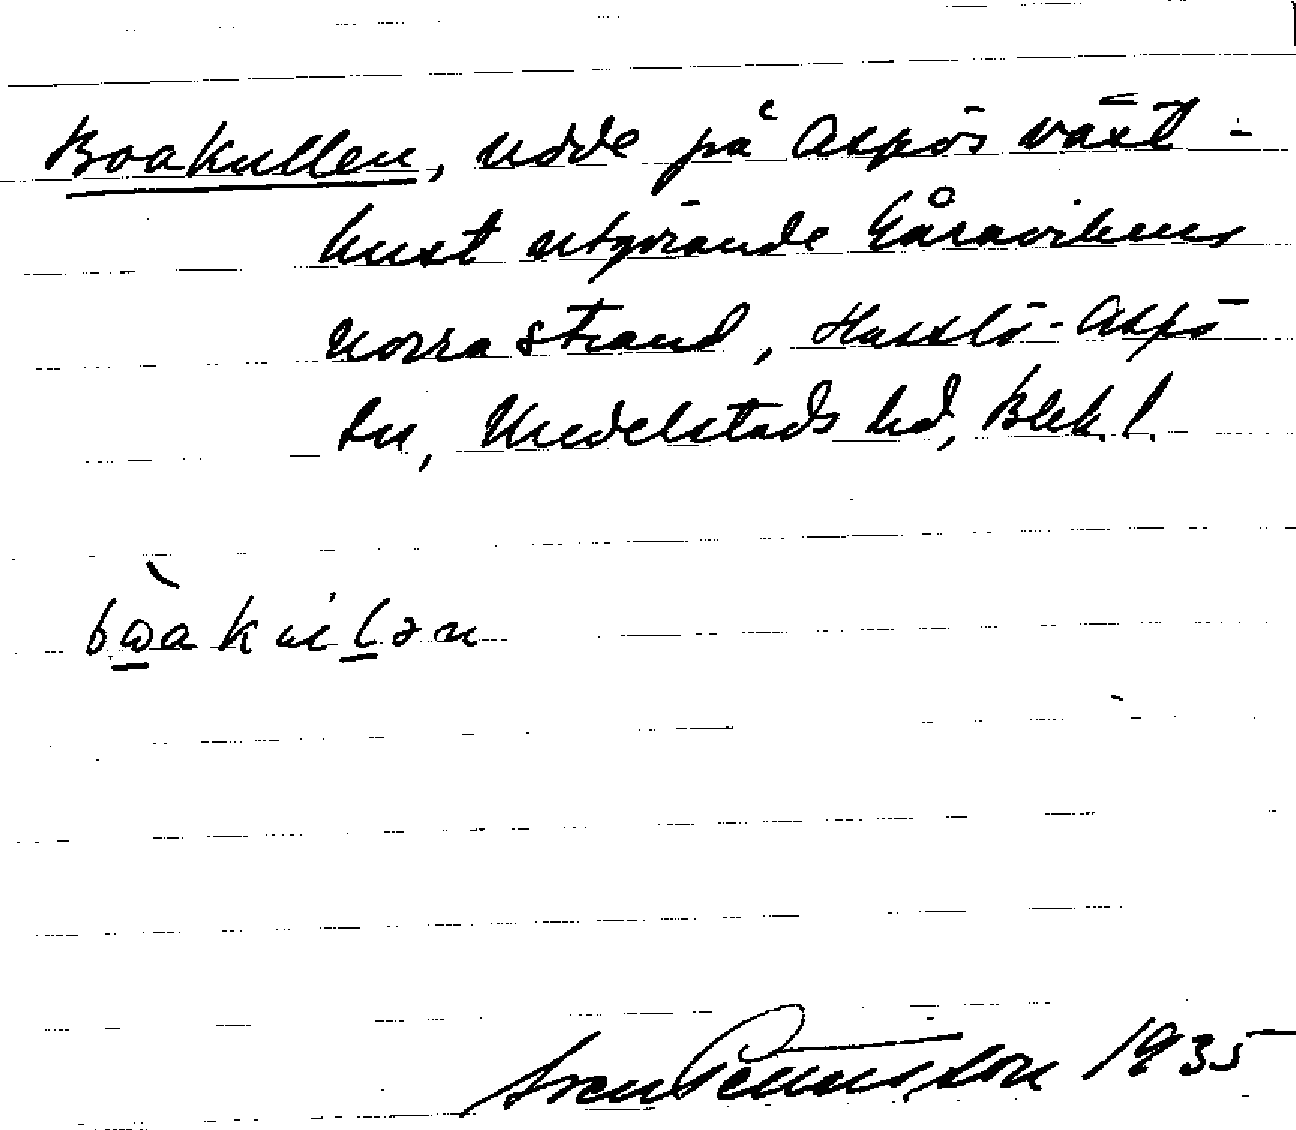 Boakullen, udde på Aspös väst-
kust utgörande Gåravikens
norra strand, Hasslö-Aspö
sn, Medelstads hd, Blek. l.
bωakulən
Sven Benson 1935